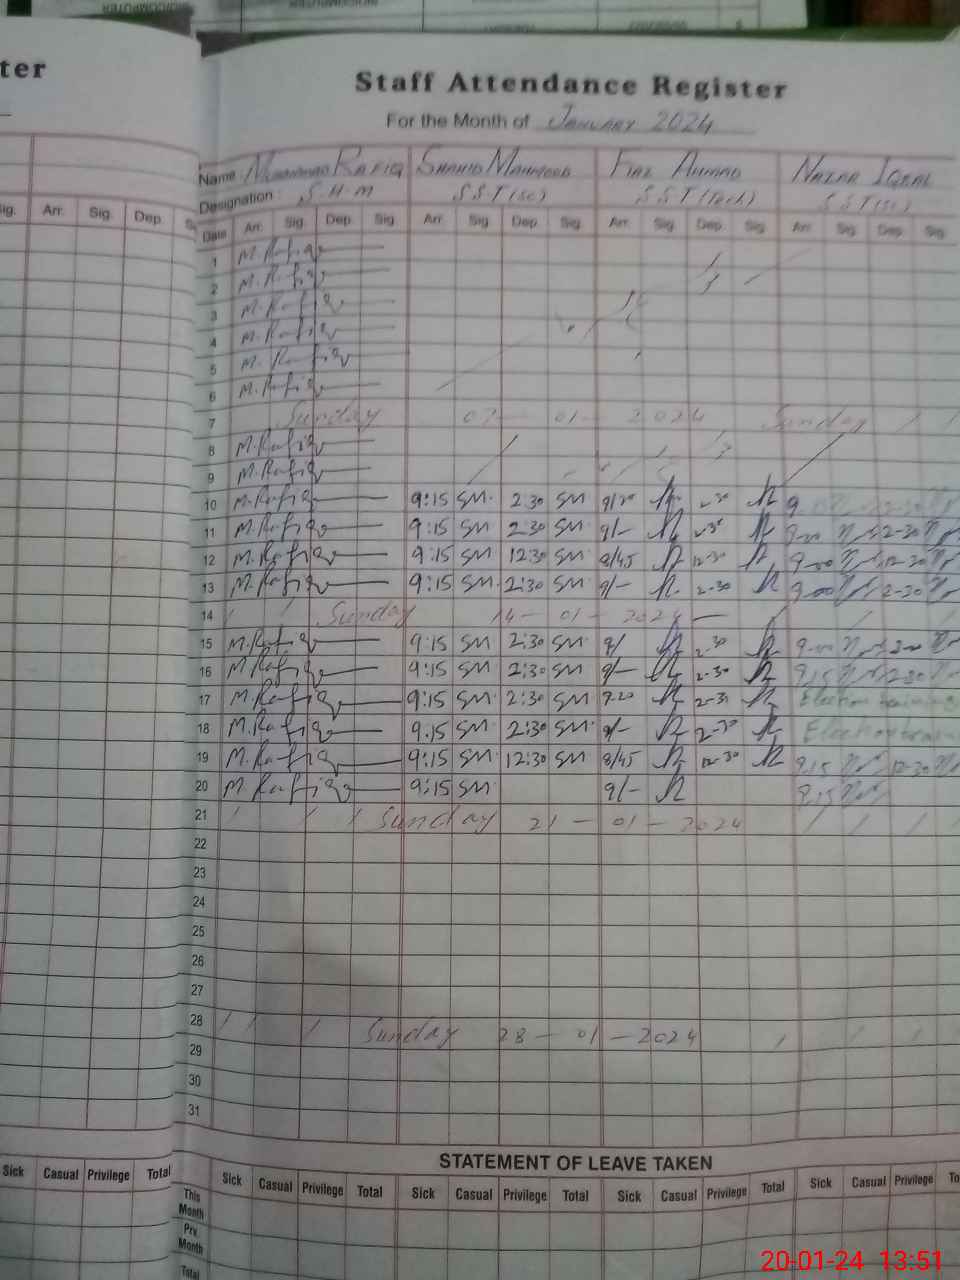 ter
Staff Attendance Register
For the Month of January 2024
Name Muhammad Rafiq Shahid Mahmood Fiaz Ahmad Nazar Iqbal
Designation: S.H.M S.S.T(sc) S.S.T(Tech) S.S.T(sc)
ig. Arr. Sig. Dep.
Date Arr. Sig. Dep. Sig Arr. Sig. Dep. Sig. Arr. Sig. Dep. Sig. Arr. Sig. Dep. Sig.
1 M.Rafiq
2 M.Rafiq
3 M.Rafiq
4 M.Rafiq
5 M.Rafiq
6 M.Rafiq
7 Sunday 07 - 01 - 2024 Sunday
8 M.Rafiq
9 M.Rafiq
10 M.Rafiq 9:15 SM 2:30 SM
11 M.Rafiq 9:15 SM 2:30 SM 9/- 2-30 9-00 2-30
12 M.Rafiq 9:15 SM 12:30 SM 8/45 12-30 9-00 12-30
13 M.Rafiq 9:15 SM 2:30 SM 9/- 2-30 9-00 2-30
14 Sunday 14 - 01 - 2024
15 M.Rafiq 9:15 SM 2:30 SM 9/ 2-30 9-00
16 M.Rafiq 9:15 SM 2:30 SM 9/- 2-30 9.15 2-30
17 M.Rafiq 9:15 SM 2:30 SM 9-20 2-31 Election training
18 M.Rafiq 9.15 SM 2:30 SM 9/- 2-30 Election
19 M.Rafiq 9:15 SM 12:30 SM 8/45 12-30 9.15 12-30
20 M.Rafiq 9:15 SM 9/- 9.15
21 Sunday 21 - 01 - 2024
22
23
24
25
26
27
28 Sunday 28 - 01 - 2024
29
30
31
STATEMENT OF LEAVE TAKEN
Sick Casual Privilege Total Sick Casual Privilege Total Sick Casual Privilege Total Sick Casual Privilege Total Sick Casual Privilege To
This Month
Prv Month
Total
20-01-24 13:51